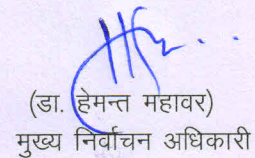 (डा. हेमन्त महावर)
मुख्य निर्वाचन अधिकारी